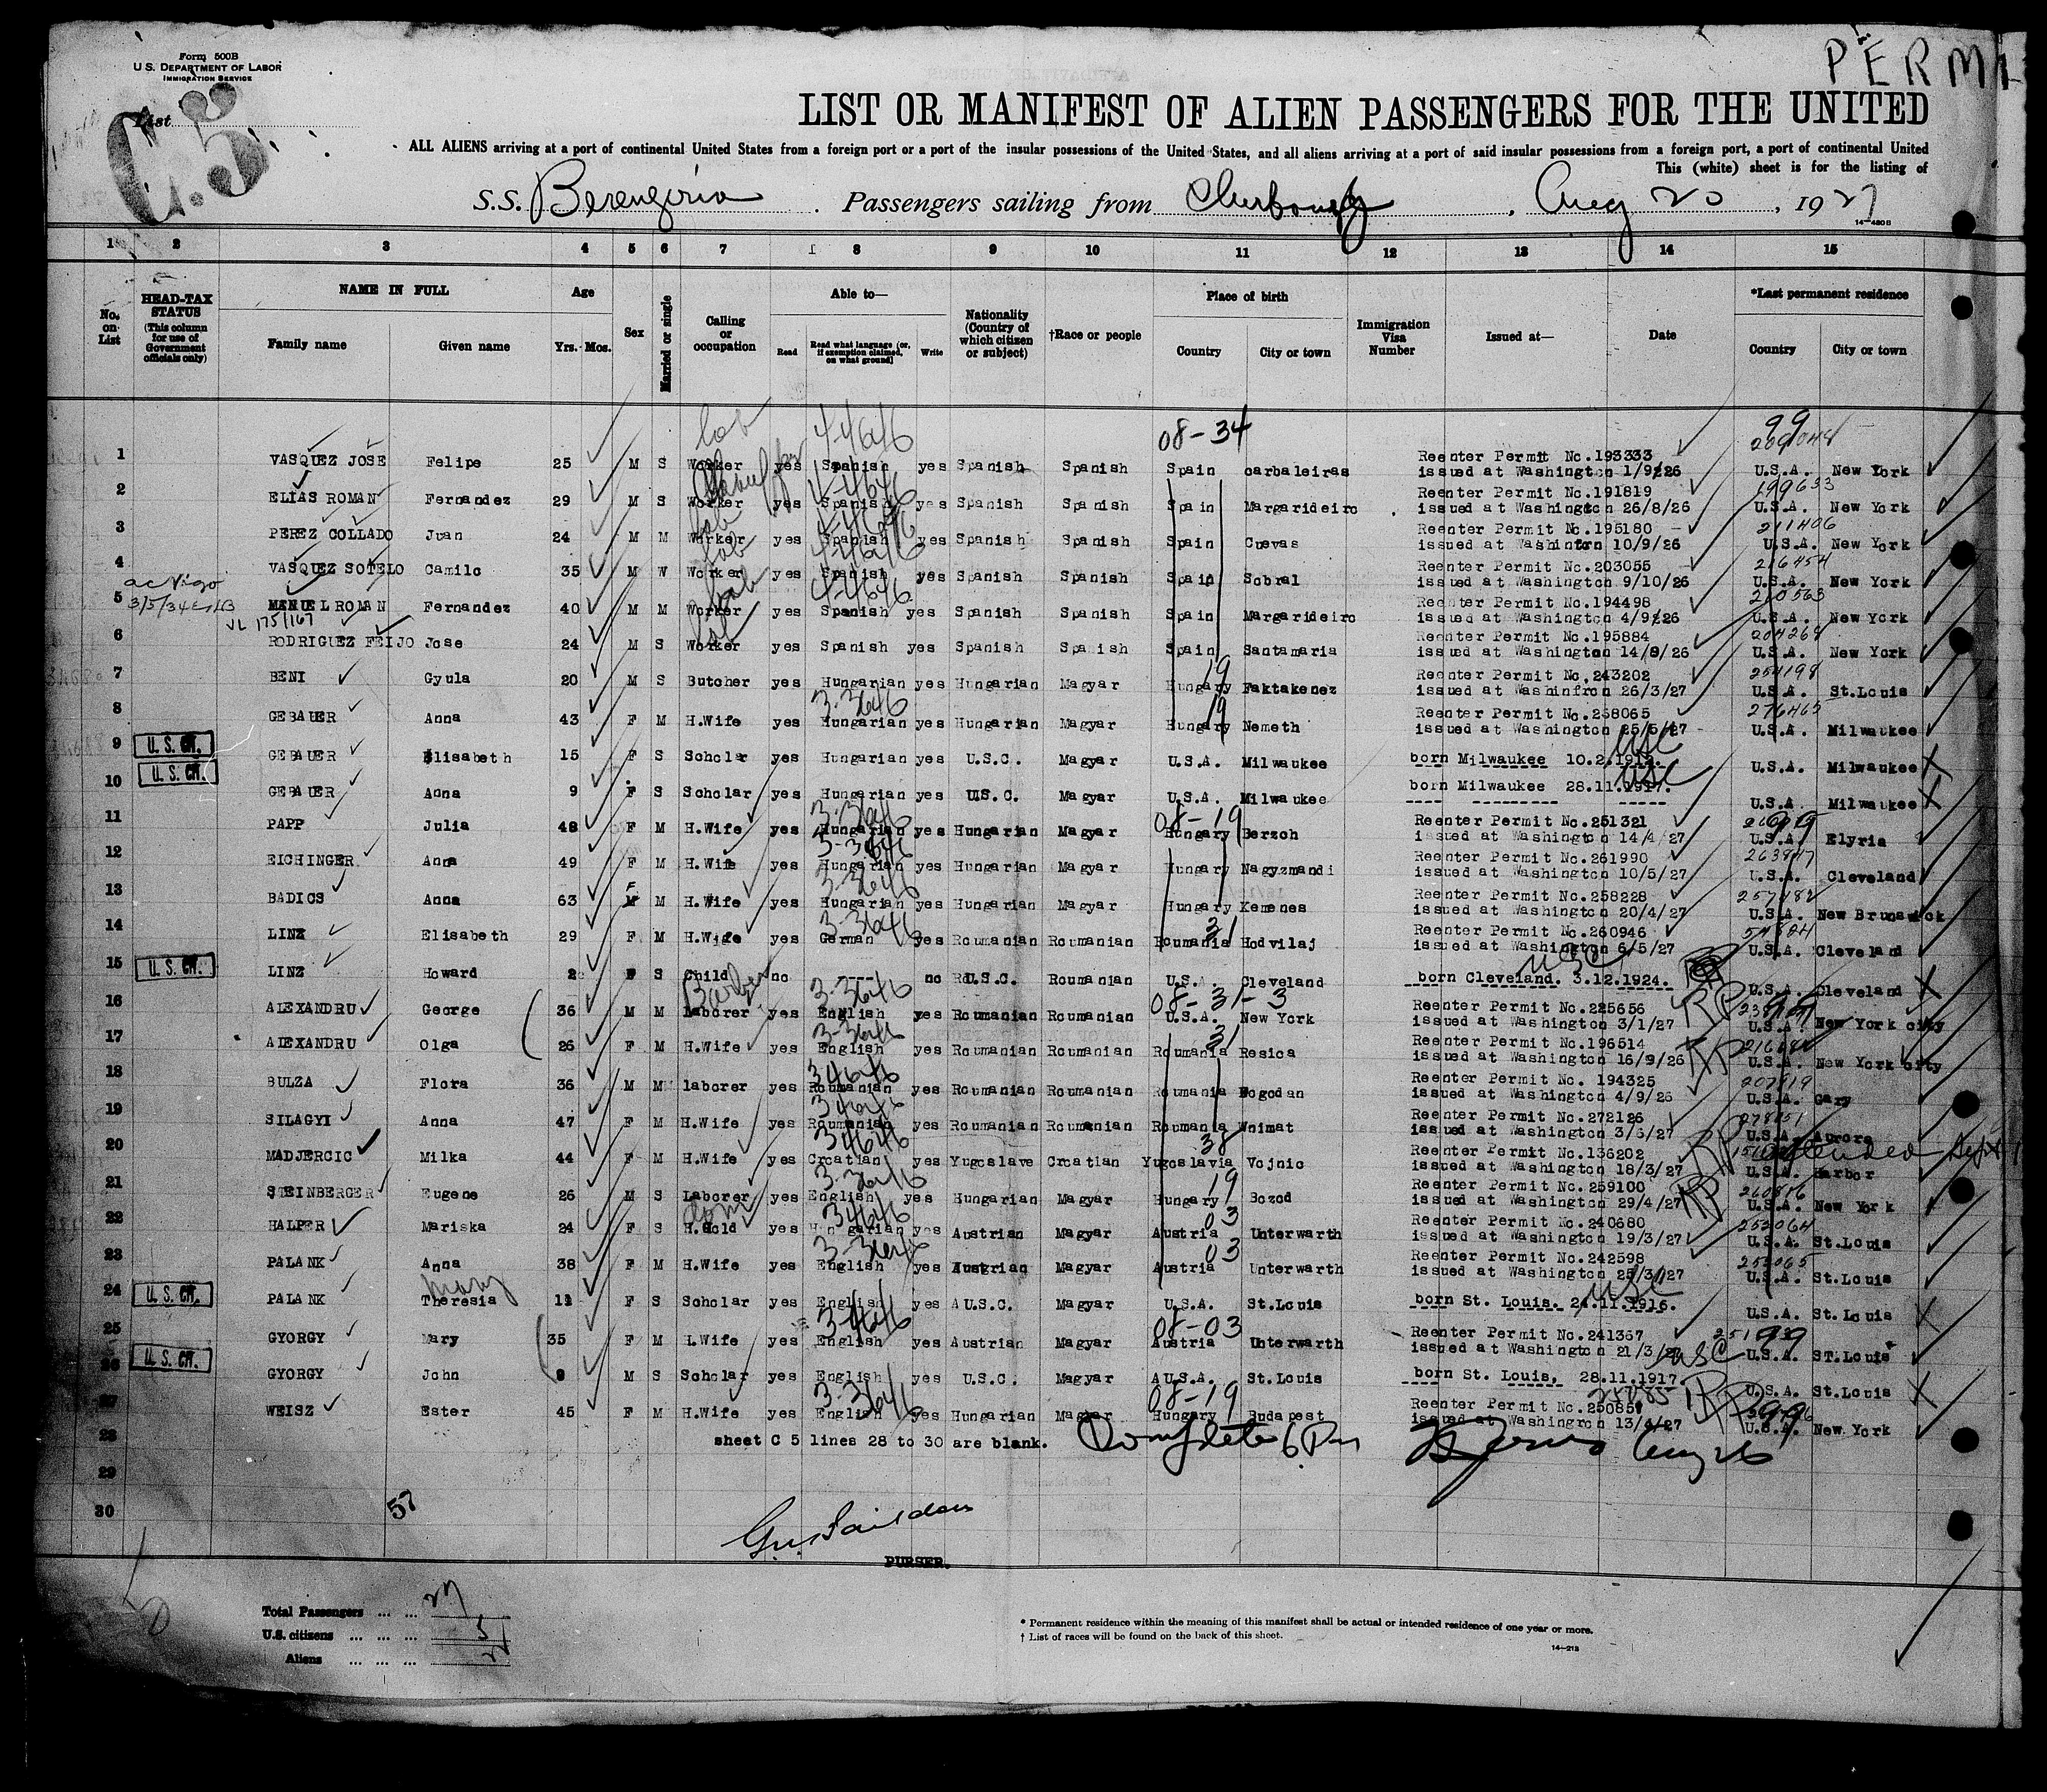 Form 500B
U.S. DEPARTMENT OF LABOR
IMMIGRATION SERVICE
PERMI
List
C.5
LIST OR MANIFEST OF ALIEN PASSENGERS FOR THE UNITED
ALL ALIENS arriving at a port of continental United States from a foreign port or a port of the insular possessions of the United States, and all aliens arriving at a port of said insular possessions from a foreign port, a port of continental United
This (white) sheet is for the listing of
S.S. Berengaria Passengers sailing from Cherbourg, Aug 20, 1927
14—4808
1 2 3 4 5 6 7 8 9 10 11 12 13 14 15
No. on List HEAD-TAX STATUS (This column for use of Government officials only) NAME IN FULL Family name Given name Age Yrs. Mos. Sex Married or single Calling or occupation Able to— Read Read what language [or, if exemption claimed, on what ground] Write Nationality (Country of which citizen or subject) †Race or people Place of birth Country City or town Immigration Visa Number Issued at— Date *Last permanent residence Country City or town
lab 4-4646 08-34 99
1 VASQUEZ JOSE Felipe 25 M S Worker yes Spanish yes Spanish Spanish Spain carbaleiras Reenter Permit No.193333 issued at Washington 1/9/26 U.S.A. New York
2 ELIAS ROMAN Fernandez 29 M S Worker yes Spanish yes Spanish Spanish Spain Margarideiro Reenter Permit No.191819 issued at Washington 26/8/26 199633 U.S.A. New York
3 PEREZ COLLADO Juan 24 M M Worker yes Spanish yes Spanish Spanish Spain Cuevas Reenter Permit No.195180 issued at Washinfron 10/9/26 211406 U.S.A. New York
4 VASQUEZ SOTELO Camilo 35 M W Worker yes Spanish yes Spanish Spanish Spain Sobral Reenter Permit No.203055 issued at Washington 9/10/26 216454 U.S.A. New York
ac Vigo
3/5/34
5 MANUEL ROMAN Fernandez 40 M M Worker yes Spanish yes Spanish Spanish Spain Margarideiro Reenter Permit No.194498 issued at Washington 4/9/26 210563 U.S.A. New York
VL 175/167
6 RODRIGUEZ FEIJO Jose 24 M S Worker yes Spanish yes Spanish Spanish Spain Santamaria Reenter Permit No.195884 issued at Washington 14/9/26 204268 U.S.A. New York
7 BENI Gyula 20 M S Butcher yes Hungarian yes Hungarian Magyar Hungary Faktakenez Reenter Permit No.243202 issued at Washinfron 26/3/27 254198 U.S.A. St.Louis
8 GEBAUER Anna 43 F M H.Wife yes Hungarian yes Hungarian Magyar Hungary Nemeth Reenter Permit No.258065 issued at Washington 25/5/27 276465 U.S.A. Milwaukee
9 U.S. CIT. GEBAUER Elisabeth 15 F S Scholar yes Hungarian yes U.S.C. Magyar U.S.A. Milwaukee born Milwaukee 10.2.1912. USC U.S.A. Milwaukee
10 U.S. CIT. GEBAUER Anna 9 F S Scholar yes Hungarian yes U.S.C. Magyar U.S.A. Milwaukee born Milwaukee 28.11.1917. USC U.S.A Milwaukee
11 PAPP Julia 48 F M H.Wife yes Hungarian yes Hungarian Magyar Hungary Berzch Reenter Permit No.251321 issued at Washington 14/4/27 U.S.A. Elyria
12 EICHINGER Anna 49 F M H.Wife yes Hungarian yes Hungarian Magyar Hungary Nagyzmandi Reenter Permit No.261990 issued at Washington 10/5/27 263847 U.S.A. Cleveland
13 BADICS Anna 63 F H.Wife yes Hungarian yes Hungarian Magyar Hungary Kemenes Reenter Permit No.258228 issued at Washington 20/4/27 257482 U.S.A. New Brunswick
14 LINZ Elisabeth 29 F M H.Wife yes German yes Roumanian Roumanian Roumania Hodvilaj Reenter Permit No.260946 issued at Washington 6/5/27 U.S.A. Cleveland
15 U.S. CIT. LINZ Howard 2 S Child no ---- no U.S.C. Roumanian U.S.A. Cleveland born Cleveland. 3.12.1924. USC U.S.A. Cleveland
16 ALEXANDRU George 36 M M Laborer Barber yes English yes Roumanian Roumanian 08-31-3 U.S.A. New York Reenter Permit No.225656 issued at Washington 3/1/27 RP U.S.A. New York city
17 ALEXANDRU Olga 26 F M H.Wife yes English yes Roumanian Roumanian Roumania Resica Reenter Permit No.196514 issued at Washington 16/9/26 RP U.S.A. New York city
18 BULZA Flora 36 M M laborer yes Roumanian yes Roumanian Roumanian Roumania Bogodan Reenter Permit No. 194325 issued at Washington 4/9/26 207819 U.S.A. Gary
19 SILAGYI Anna 47 F M H.Wife yes Roumanian yes Roumanian Roumanian Roumania Wnimat Reenter Permit No.272126 issued at Washington 3/6/27 278851 U.S.A. Aurora
20 MADJERCIC Milka 44 F M H.Wife yes Croatian yes Yugoslave Croatian Yugoslavia Vojnic Reenter Permit No.136202 issued at Washington 18/3/27 RP extended Sept 1 U.S.A. Harbor
21 STEINBERGER Eugene 26 M S Laborer yes English yes Hungarian Magyar Hungary Bozod Reenter Permit No.259100 issued at Washington 29/4/27 RP 260816 U.S.A. New York
22 HALPER Mariska 24 F S H.Hold dom yes Hungarian yes Austrian Magyar Austria Unterwarth Reenter Permit No.240680 issued at Washington 19/3/27 253064 U.S.A. St.Louis
23 PALANK Anna 38 F M H.Wife yes English yes Austrian Magyar Austria Unterwarth Reenter Permit No.242598 issued at Washington 25/3/27 253065 U.S.A. St.Louis
24 U.S. CIT. PALANK Theresia Mary 11 F S Scholar yes English yes U.S.C. Magyar U.S.A. St.Louis born St. Louis. 24.11.1916. USC U.S.A. St.Louis
25 GYORGY Mary 35 F M H.Wife yes English yes Austrian Magyar 08-03 Austria Unterwarth Reenter Permit No.241367 issued at Washington 21/3/27 99 U.S.A. ST.Louis
26 U.S. CIT. GYORGY John 9 M S Scholar yes English yes U.S.C. Magyar U.S.A. St.Louis born St. Louis, 28.11.1917. USC U.S.A. St.Louis
27 WEISZ Ester 45 F M H.Wife yes English yes Hungarian Magyar 08-19 Hungary Budapest Reenter Permit No.250851 issued at Washingron 13/4/27 RP 99 U.S.A. New York
28 sheet C 5 lines 28 to 30 are blank. Complete 6 Pm Aug 26
29
30
57
PURSER.
Total Passengers ... ... 27
U.S. citizens ... ... ... 5
Aliens ... ... ... 22
* Permanent residence within the meaning of this manifest shall be actual or intended residence of one year or more.
† List of races will be found on the back of this sheet.
14—213